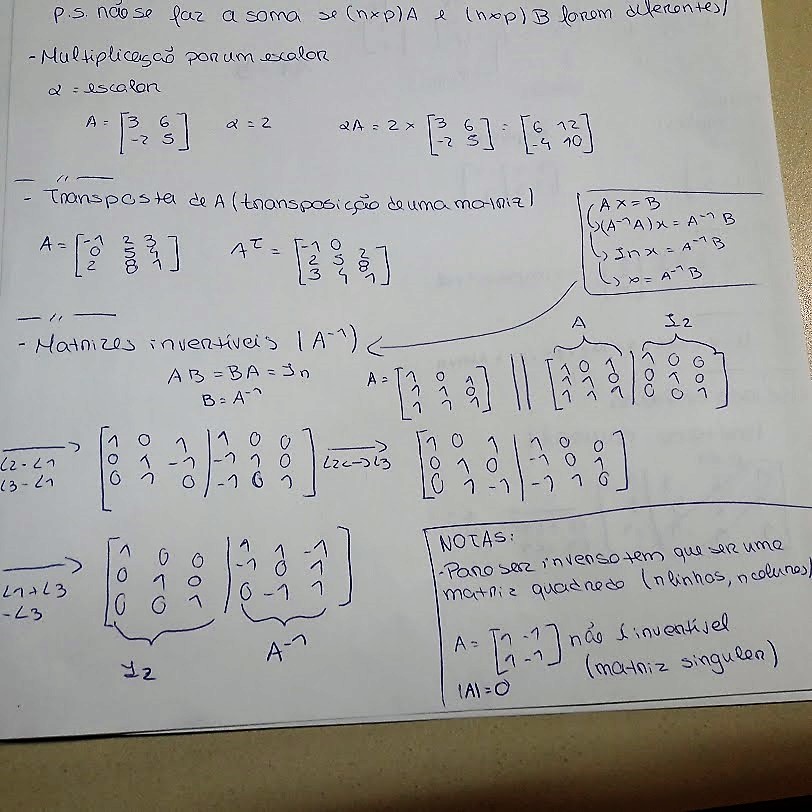 p.s. não se faz a soma se (n×p)A e (n×p)B forem diferentes/
- Multiplicação por um escalar
α = escalar
A = [3 6
-2 5] α = 2 αA = 2 × [3 6
-2 5] = [6 12
-4 10]
— // —
- Transposta de A (transposição de uma matriz)
A = [-1 2 3
0 5 4
2 8 1]
Aᵀ = [-1 0
2 5 2
3 4 8
1]
Ax = B
↳ (A⁻¹A)x = A⁻¹B
↳ Inx = A⁻¹B
↳ x = A⁻¹B
— // —
- Matrizes invertíveis (A⁻¹)
AB = BA = In
B = A⁻¹
A = [1 0 1
1 1 0
1 1 1]
||
A I2
[1 0 1 | 1 0 0
1 1 0 | 0 1 0
1 1 1 | 0 0 1]
→
L2-L1
L3-L1
[1 0 1 | 1 0 0
0 1 -1 | -1 1 0
0 1 0 | -1 0 1]
→
L2<->L3
[1 0 1 | 1 0 0
0 1 0 | -1 0 1
0 1 -1 | -1 1 0]
→
L1+L3
-L3
[1 0 0 | 1 1 -1
0 1 0 | -1 0 1
0 0 1 | 0 -1 1]
I2 A⁻¹
NOTAS:
- Para ser inverso tem que ser uma
matriz quadrada (n linhas, n colunas)
A = [1 -1
1 -1] não é invertível
(matriz singular)
|A| = 0